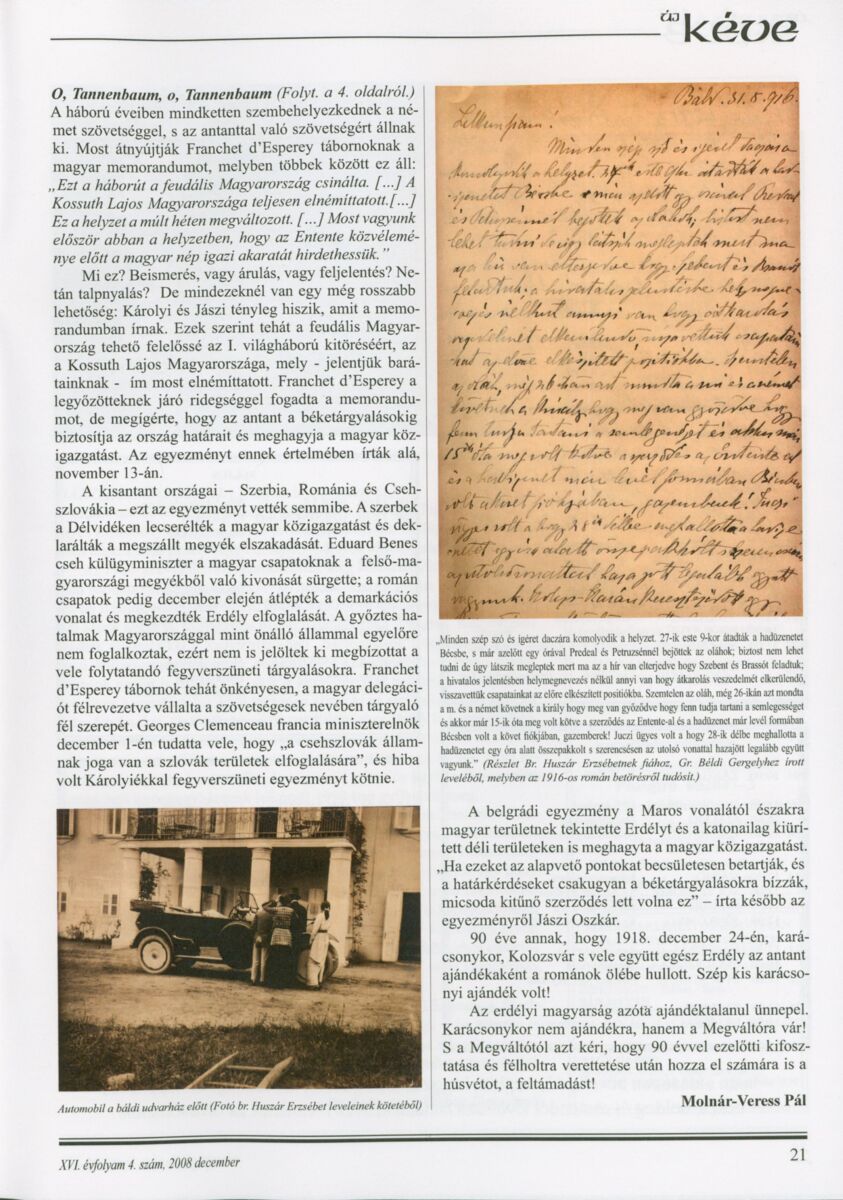 új kéve
O, Tannenbaum, o, Tannenbaum (Folyt. a 4. oldalról.)
A háború éveiben mindketten szembehelyezkednek a né-
met szövetséggel, s az antanttal való szövetségért állnak
ki. Most átnyújtják Franchet d’Esperey tábornoknak a
magyar memorandumot, melyben többek között ez áll:
„Ezt a háborút a feudális Magyarország csinálta. [...] A
Kossuth Lajos Magyarországa teljesen elnémittatott.[...]
Ez a helyzet a múlt héten megváltozott. [...] Most vagyunk
először abban a helyzetben, hogy az Entente közvélemé-
nye előtt a magyar nép igazi akaratát hirdethessük.”
Mi ez? Beismerés, vagy árulás, vagy feljelentés? Ne-
tán talpnyalás? De mindezeknél van egy még rosszabb
lehetőség: Károlyi és Jászi tényleg hiszik, amit a memo-
randumban írnak. Ezek szerint tehát a feudális Magyar-
ország tehető felelőssé az I. világháború kitöréséért, az
a Kossuth Lajos Magyarországa, mely - jelentjük bará-
tainknak - ím most elnémíttatott. Franchet d’Esperey a
legyőzötteknek járó ridegséggel fogadta a memorandu-
mot, de megígérte, hogy az antant a béketárgyalásokig
biztosítja az ország határait és meghagyja a magyar köz-
igazgatást. Az egyezményt ennek értelmében írták alá,
november 13-án.
A kisantant országai – Szerbia, Románia és Cseh-
szlovákia – ezt az egyezményt vették semmibe. A szerbek
a Délvidéken lecserélték a magyar közigazgatást és dek-
larálták a megszállt megyék elszakadását. Eduard Benes
cseh külügyminiszter a magyar csapatoknak a felső-ma-
gyarországi megyékből való kivonását sürgette; a román
csapatok pedig december elején átlépték a demarkációs
vonalat és megkezdték Erdély elfoglalását. A győztes ha-
talmak Magyarországgal mint önálló állammal egyelőre
nem foglalkoztak, ezért nem is jelöltek ki megbízottat a
vele folytatandó fegyverszüneti tárgyalásokra. Franchet
d’Esperey tábornok tehát önkényesen, a magyar delegáci-
ót félrevezetve vállalta a szövetségesek nevében tárgyaló
fél szerepét. Georges Clemenceau francia miniszterelnök
december 1-én tudatta vele, hogy „a csehszlovák állam-
nak joga van a szlovák területek elfoglalására”, és hiba
volt Károlyiékkal fegyverszüneti egyezményt kötnie.
Automobil a báldi udvarház előtt (Fotó br. Huszár Erzsébet leveleinek kötetéből)
Báld. 31.8.916.
Minden szép szó és igéret daczára
„Minden szép szó és igéret daczára komolyodik a helyzet. 27-ik este 9-kor átadták a hadüzenetet
Bécsbe, s már azelőtt egy órával Predeal és Petruzsénnél bejöttek az oláhok; biztost nem lehet
tudni de úgy látszik megleptek mert ma az a hír van elterjedve hogy Szebent és Brassót feladtuk;
a hivatalos jelentésben helymegnevezés nélkül annyi van hogy átkarolás veszedelmét elkerülendő,
visszavettük csapatainkat az előre elkészitett positiókba. Szemtelen az oláh, még 26-ikán azt mondta
a m. és a német követnek a király hogy meg van győződve hogy fenn tudja tartani a semlegességet
és akkor már 15-ik óta meg volt kötve a szerződés az Entente-al és a hadüzenet már levél formában
Bécsben volt a követ fiókjában, gazemberek! Juczi ügyes volt a hogy 28-ik délbe meghallotta a
hadüzenetet egy óra alatt összepakkolt s szerencsésen az utolsó vonattal hazajött legalább együtt
vagyunk.” (Részlet Br. Huszár Erzsébetnek fiához, Gr. Béldi Gergelyhez írott
leveléből, melyben az 1916-os román betörésről tudósit.)
A belgrádi egyezmény a Maros vonalától északra
magyar területnek tekintette Erdélyt és a katonailag kiürí-
tett déli területeken is meghagyta a magyar közigazgatást.
„Ha ezeket az alapvető pontokat becsületesen betartják, és
a határkérdéseket csakugyan a béketárgyalásokra bízzák,
micsoda kitűnő szerződés lett volna ez” – írta később az
egyezményről Jászi Oszkár.
90 éve annak, hogy 1918. december 24-én, kará-
csonykor, Kolozsvár s vele együtt egész Erdély az antant
ajándékaként a románok ölébe hullott. Szép kis karácso-
nyi ajándék volt!
Az erdélyi magyarság azóta ajándéktalanul ünnepel.
Karácsonykor nem ajándékra, hanem a Megváltóra vár!
S a Megváltótól azt kéri, hogy 90 évvel ezelőtti kifosz-
tatása és félholtra verettetése után hozza el számára is a
húsvétot, a feltámadást!
Molnár-Veress Pál
XVI. évfolyam 4. szám, 2008 december
21